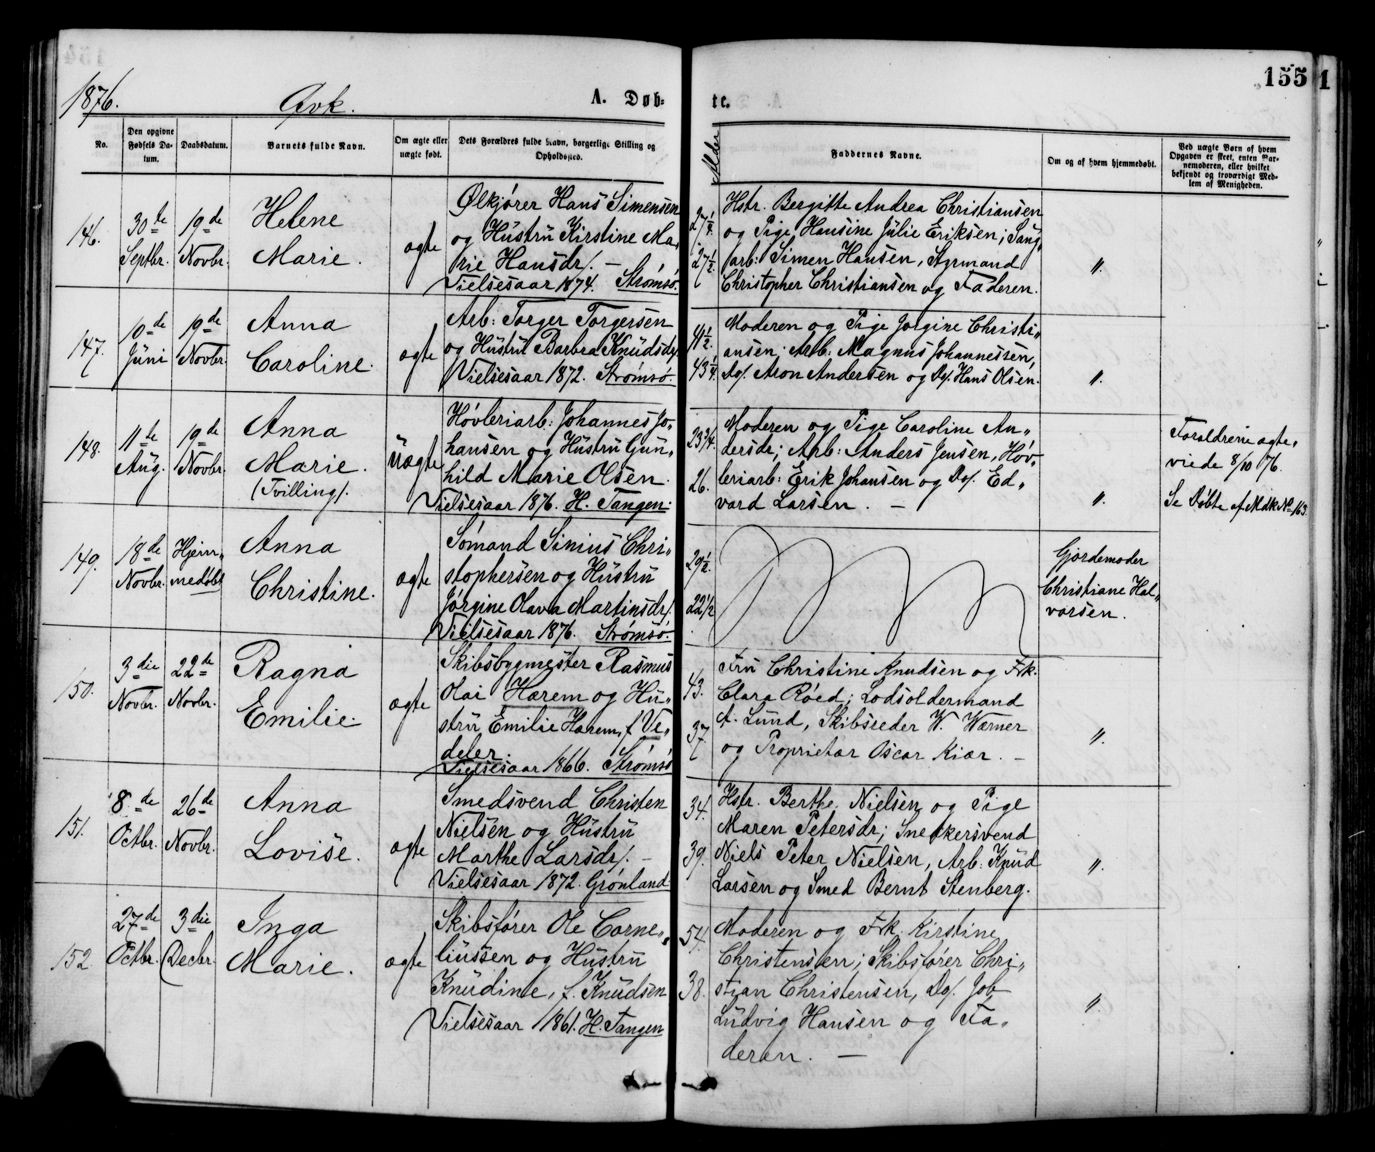 155
1876. Qvk. A. Døb- te.
No.
Den opgivne Fødsels Datum.
Daabsdatum.
Barnets fulde Navn.
Om ægte eller uægte født.
Dets Forældres fulde Navn, borgerlige Stilling og Opholdssted.
Alder
Faddernes Navne.
Om og af hvem hjemmedøbt.
Ved uægte Børn af hvem Opgaven er skeet, enten Barnemoderen, eller hvilket bekjendt og troværdigt Medlem af Menigheden.
146. 30te Septbr. 19de Novbr. Helene Marie. ægte
Ølkjører Hans Simensen
og Hustru Kirstine Ma-
rie Hansdr. —
Vielsesaar 1874. Strømsø.
27 1/2
27 1/2
Hstr. Bergitte Andrea Christiansen
og Pige Hansine Julie Eriksen; Saug-
arb: Simen Hansen, Styrmand
Christopher Christiansen og Faderen.
"
147. 10de Juni 19de Novbr. Anna Caroline. ægte
Arb: Torger Torgersen
og Hustru Barbra Knudsdr.
Vielsesaar 1872. Strømsø.
41 1/2
43 1/4
Moderen og Pige Jorgine Christi-
ansen; Arb: Magnus Johannessen,
Do. Aron Andersen og Do. Hans Olsen.
"
148. 11te Aug. 19de Novbr. Anna Marie. (Tvilling). Uægte
Høvleriarb: Johannes Jo-
hansen og Hustru Gun-
hild Marie Olsen.
Vielsesaar 1876. H. Tangen.
23 3/4.
26.
Moderen og Pige Caroline An-
dersdr; Arb: Anders Jensen, Høv-
leriarb: Erik Johansen og Do. Ed-
vard Larsen. —
"
Forældrene ægte-
viede 8/10 76.
Se Døbte af Mdk No 163.
149. 18de Novbr. Hjem-
medøbt Anna Christine. ægte
Sømand Sinius Chri-
stophersen og Hustru
Jørgine Olava Martinsdr.
Vielsesaar 1876. Strømsø.
29 1/2.
22 1/2
Gjordemoder
Christiane Hal-
vorsen.
150. 3die Novbr. 22de Novbr. Ragna Emilie. ægte
Skibsbygmester Rasmus
Olai Harem og Hu-
stru Emilie Harem, f. Ve-
deler.
Vielsesaar 1866. Strømsø
43.
37
Fru Christine Knudsen og Frk.
Clara Røed; Lodsoldermand
A. Lund, Skibsreder W. Wærner
og Proprietær Oscar Kiær. —
"
151. 8de Octbr. 26de Novbr. Anna Lovise. ægte
Smedsvend Christen
Nielsen og Hustru
Marthe Larsdr. —
Vielsesaar 1872. Grønland
34.
39.
Hstr. Berthe Nielsen og Pige
Maren Petersdr; Snedkersvend
Niels Peter Nielsen, Arb: Knud
Larsen og Smed Bernt Stenberg.
"
152 27de Octbr. 3die Decbr. Inga Marie. ægte
Skibsfører Ole Corne-
liussen og Hustru
Knudine, f. Knudsen
Vielsesaar 1861. H. Tangen
54.
38.
Moderen og Frk. Kirstine
Christensen; Skibsfører Chri-
stian Christensen, Do. Job
Ludvig Hansen og Fa-
deren. —
"